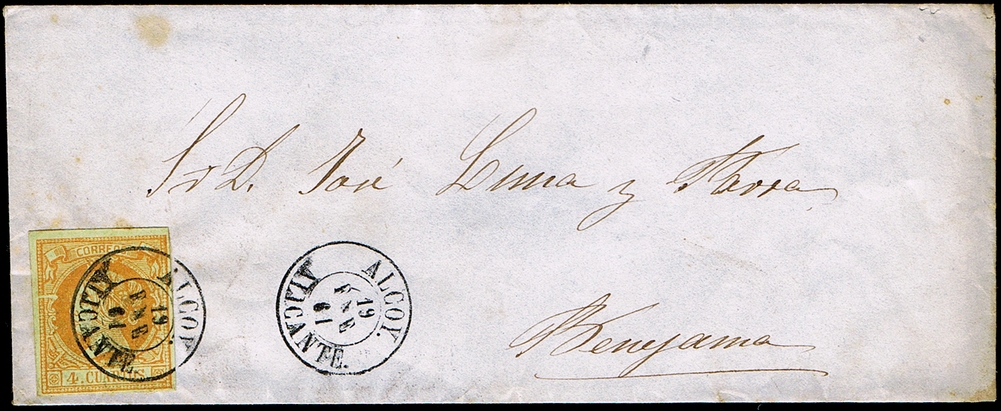 Sr D. José Luna y Parra
Benejama
CORREOS
4. CUARTOS
ALCOY.
19
ENE
61
ALICANTE.
ALCOY.
19
ENE
61
ALICANTE.